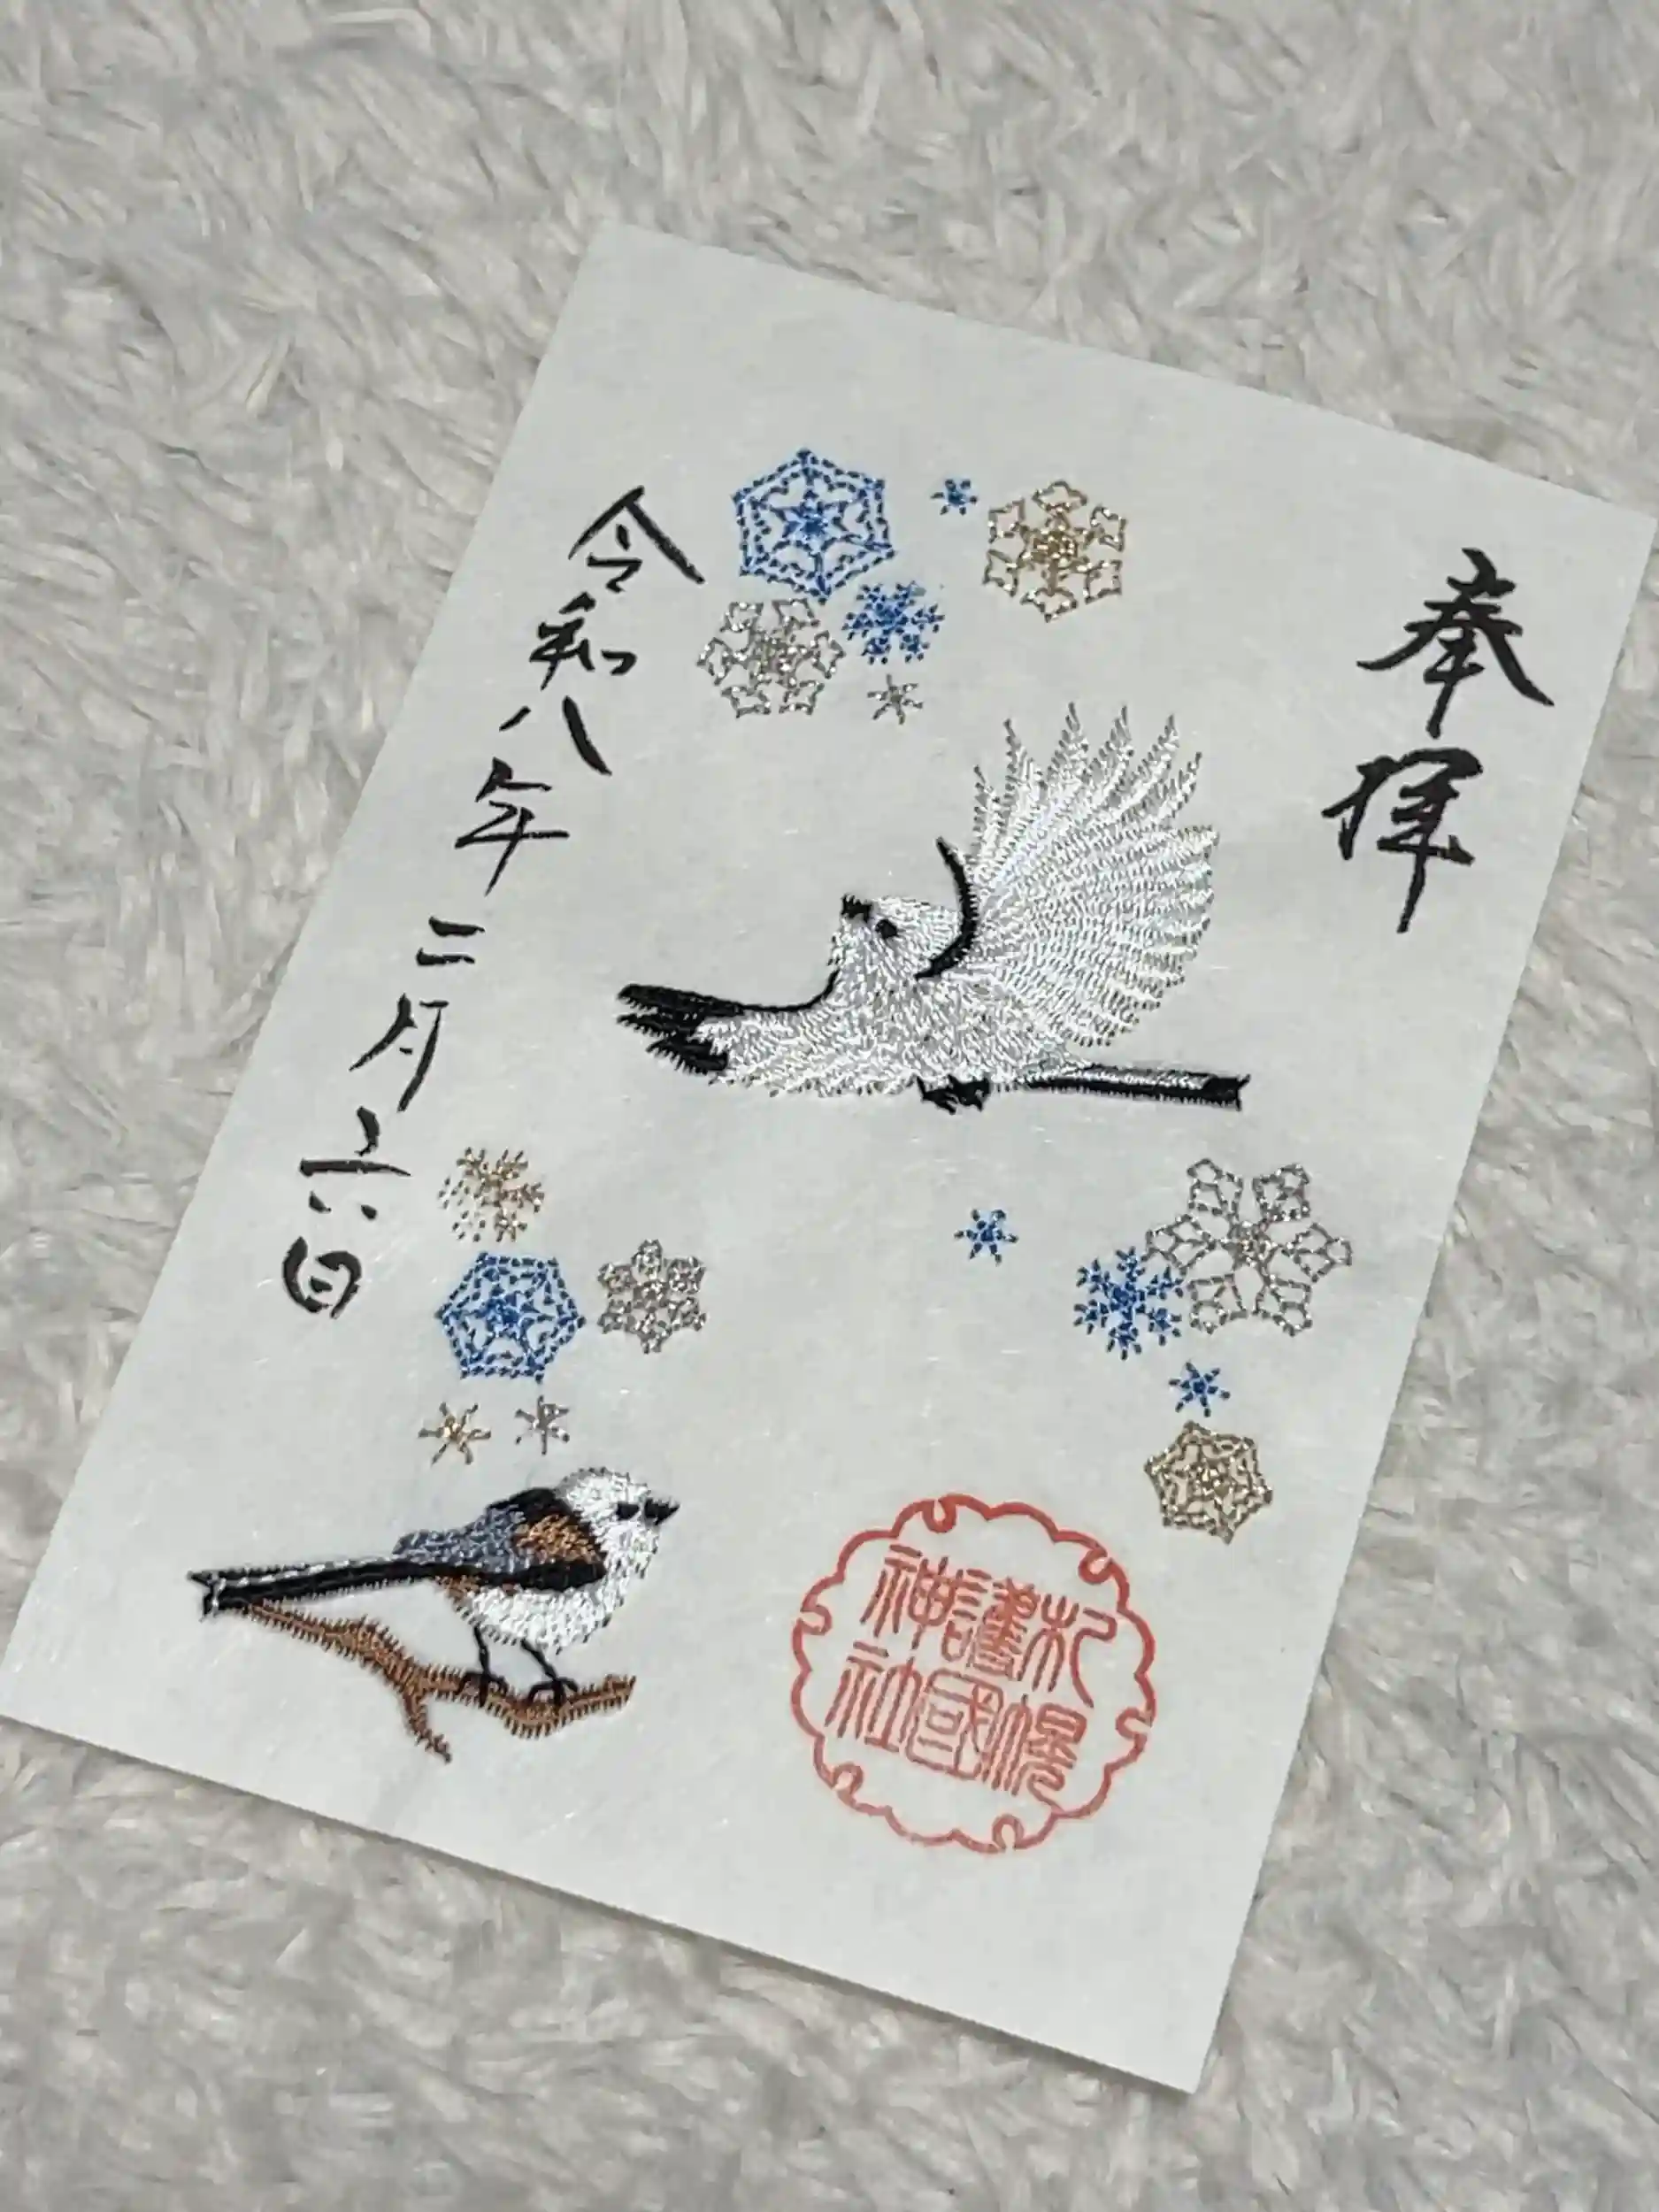 奉拝
令和八年二月六日
札幌
護國
神社